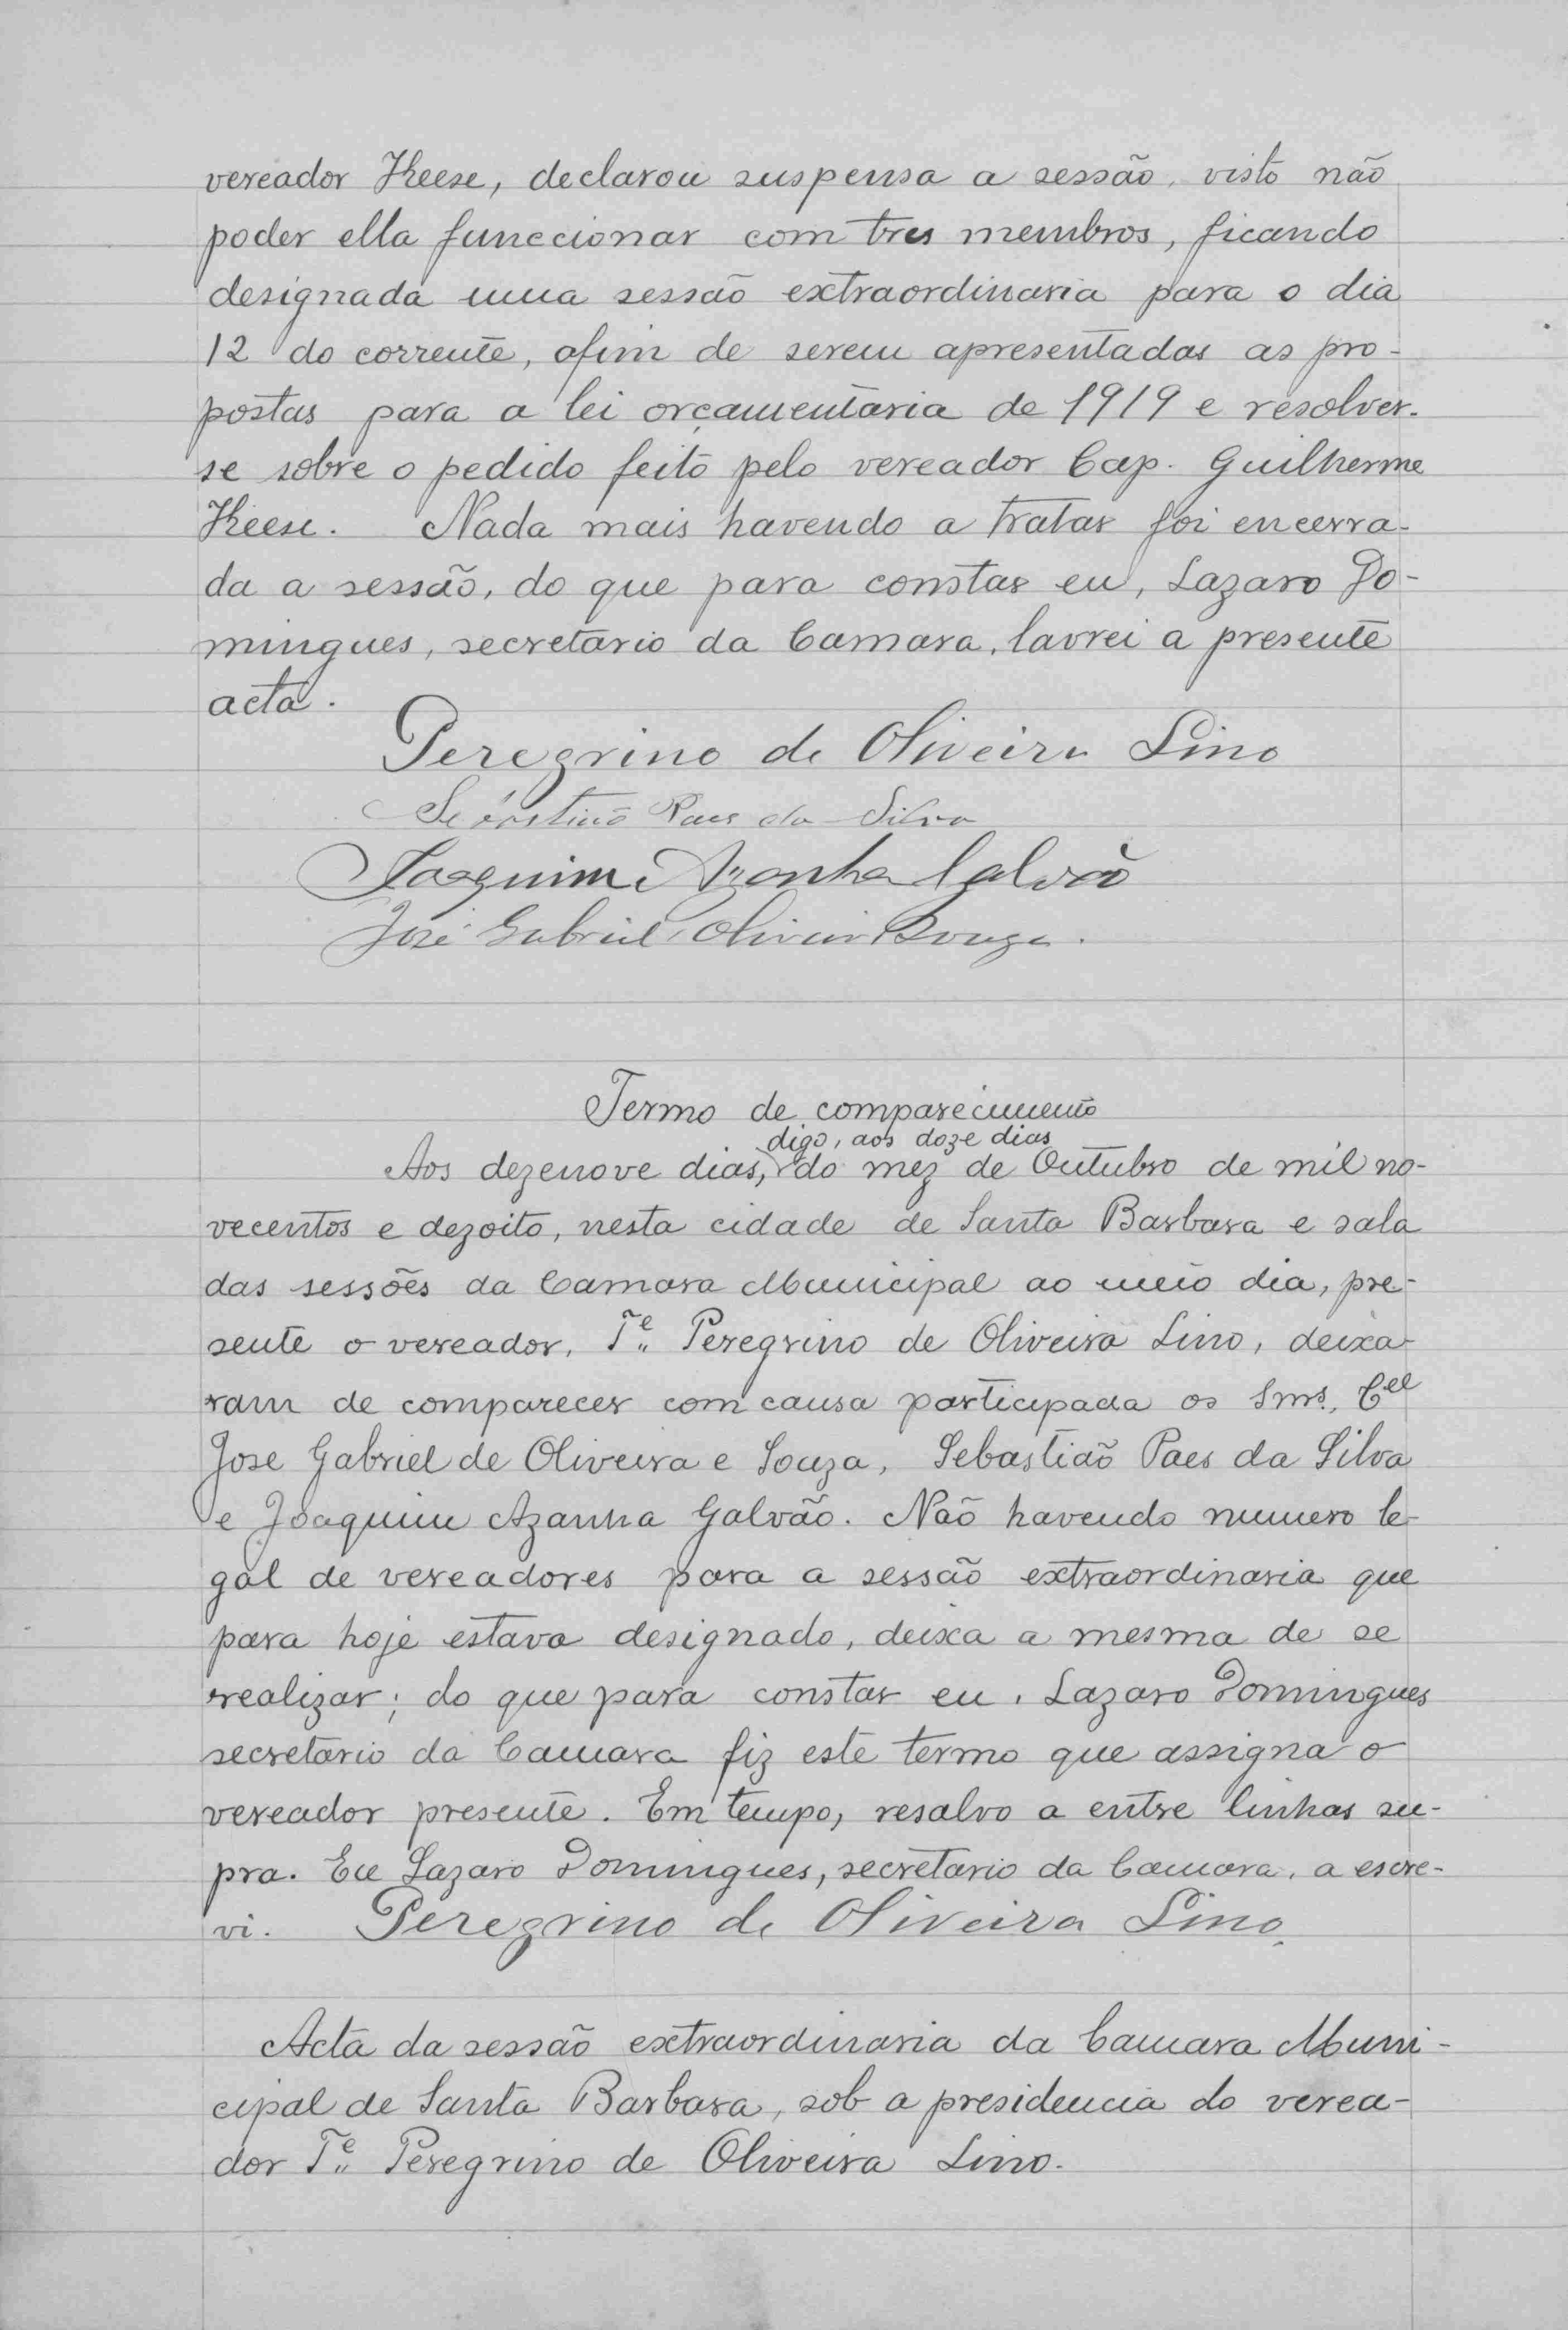 vereador Keese, declarou suspensa a sessão, visto não
poder ella funccionar com tres membros, ficando
designada uma sessão extraordinaria para o dia
12 do corrente, afim de serem apresentadas as pro-
postas para a lei orçamentaria de 1919 e resolver-
se sobre o pedido feito pelo vereador Cap. Guilherme
Keese. Nada mais havendo a tratar foi encerra-
da a sessão, do que para constar eu, Lazaro Do-
mingues, secretario da Camara, lavrei a presente
acta.
Peregrino de Oliveira Lino
Sebastião Paes da Silva
Joaquim Azanha Galvão
José Gabriel Oliveira Souza.
Termo de comparecimento
digo, aos doze dias
Aos dezenove dias, do mez de Outubro de mil no-
vecentos e dezoito, nesta cidade de Santa Barbara e sala
das sessões da Camara Municipal ao meio dia, pre-
sente o vereador, Te. Peregrino de Oliveira Lino, deixa-
ram de comparecer com causa participada os Snrs. Cel
Jose Gabriel de Oliveira e Souza, Sebastião Paes da Silva
e Joaquim Azanha Galvão. Não havendo numero le-
gal de vereadores para a sessão extraordinaria que
para hoje estava designado, deixa a mesma de se
realizar; do que para constar eu, Lazaro Domingues
secretario da Camara fiz este termo que assigna o
vereador presente. Em tempo, resalvo a entre linhas su-
pra. Eu Lazaro Domingues, secretario da Camara, a escre-
vi. Peregrino de Oliveira Lino
Acta da sessão extraordinaria da Camara Muni-
cipal de Santa Barbara, sob a presidencia do verea-
dor Te. Peregrino de Oliveira Lino.